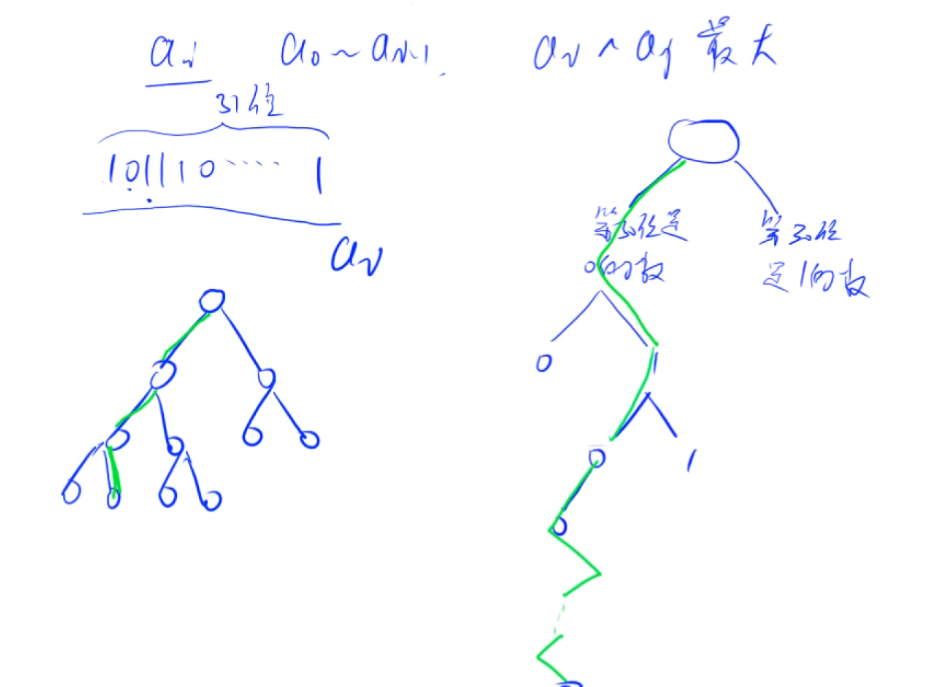 aᵢ a₀~aᵢ₋₁ aᵢ ^ aⱼ 最大
31位
101110 ····· 1
aᵢ
第30位是 第30位
0的数 是1的数
0 1
0 1